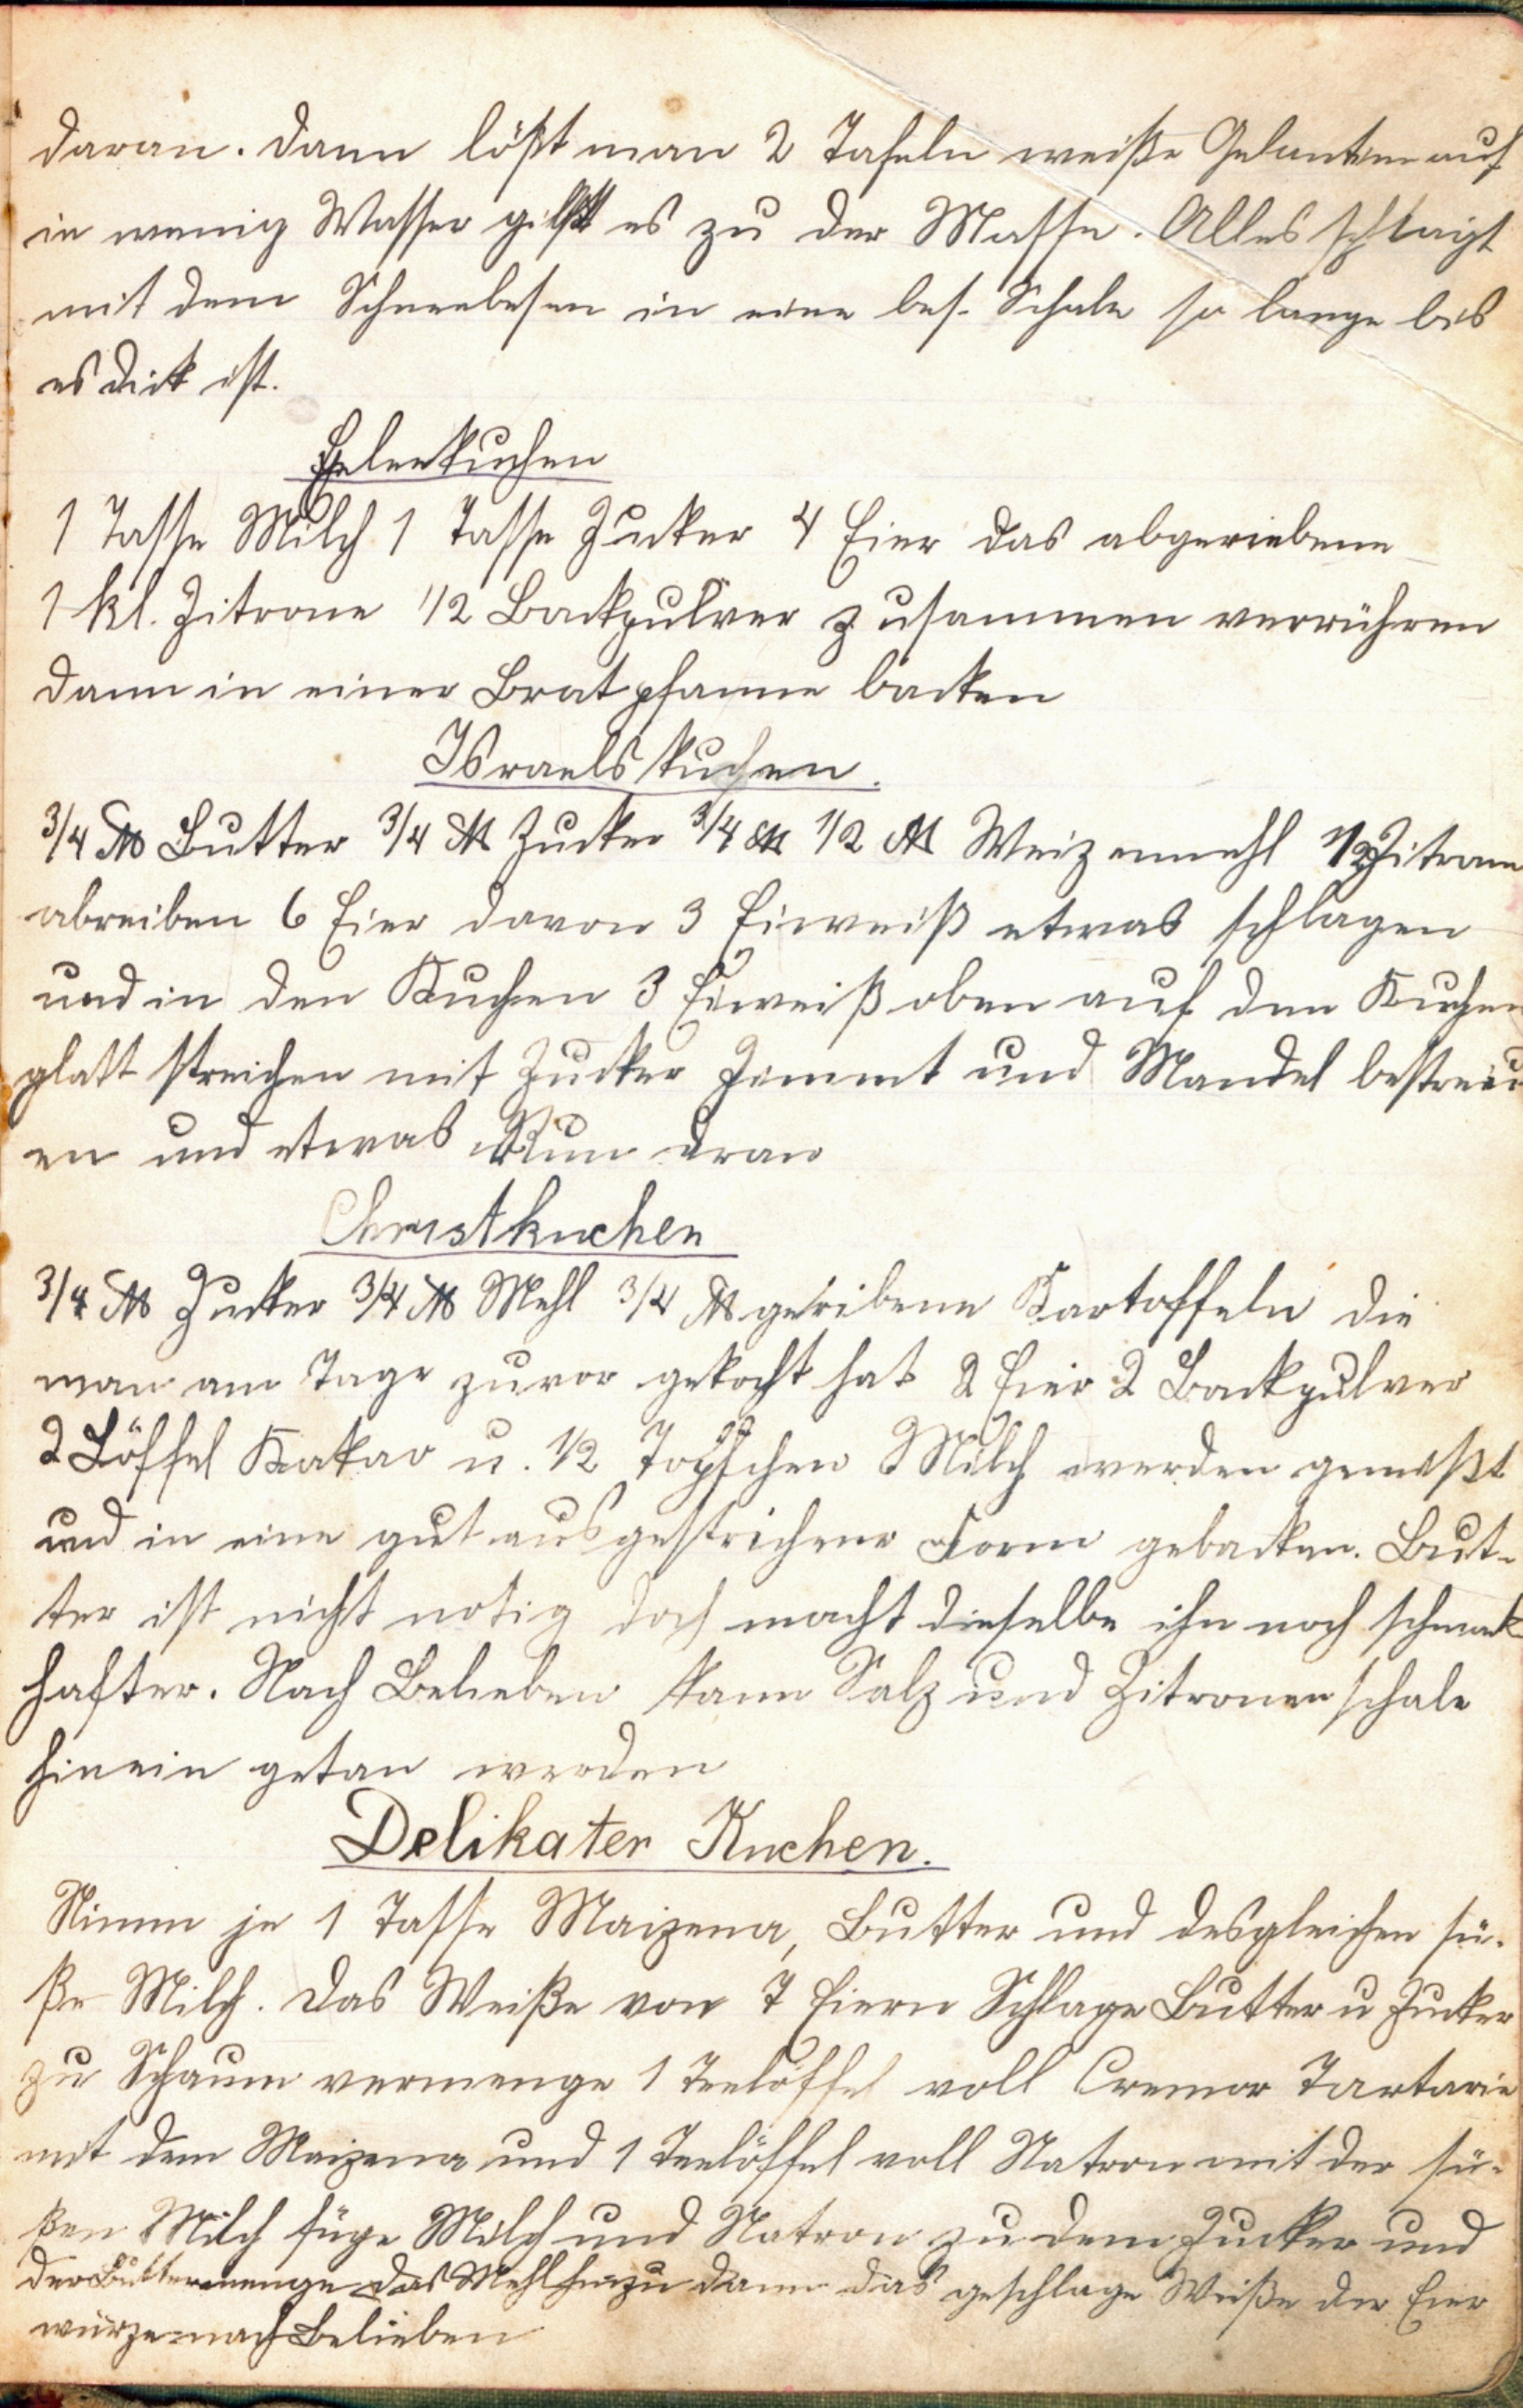 daran. Dann lößt man 2 Tafeln weiße Gelantine auf
in wenig Wasser gibst es zu der Masse. Alles schlägt
mit dem Schneebesen in eine bes. Schale so lange bis
es dick ist.
Eelenkuchen
1 Tasse Milch 1 Tasse Zucker 4 Eier das abgeriebene
1 kl. Zitrone 1/2 Backpulver zusammen verrühren
dann in einer Bratpfanne backen
Israelskuchen.
3/4 ℔ Butter 3/4 ℔ Zucker 3/4 ℔ 1/2 ℔ Weizenmehl 1/2 Zitrone
abreiben 6 Eier davon 3 Eiweiß etwas schlagen
und in den Kuchen 3 Eiweiß oben auf den Kuchen
glatt streichen mit Zucker Zimmt und Mandel bestreu
en und etwas Rum dran
Christkuchen
3/4 ℔ Zucker 3/4 ℔ Mehl 3/4 ℔ geribene Kartoffeln die
man am Tage zuvor gekocht hat 2 Eier 2 Backpulver
2 Löffel Kakao u. 1/2 Töpfchen Milch werden gemißt
und in eine gut ausgestrichene Form gebacken. But-
ter ist nicht nötig doch macht dieselbe ihn noch schmack
hafter. Nach Belieben kann Salz und Zitronenschale
hinein getan werden
Delikater Kuchen.
Nimm je 1 Tasse Maizena, Butter und desgleichen sü-
ße Milch. Das Weiße von 7 Eiern Schlage Butter u Zucker
zu Schaum vermenge 1 Teelöffel voll Cremor Tartarie
mit dem Maizena und 1 Teelöffel voll Natron mit der sü-
ßen Milch füge Milch und Natron zu dem Zucker und
der Buttermenge das Mehl hinzu dann das geschlage Weiße der Eier
würze nach Belieben